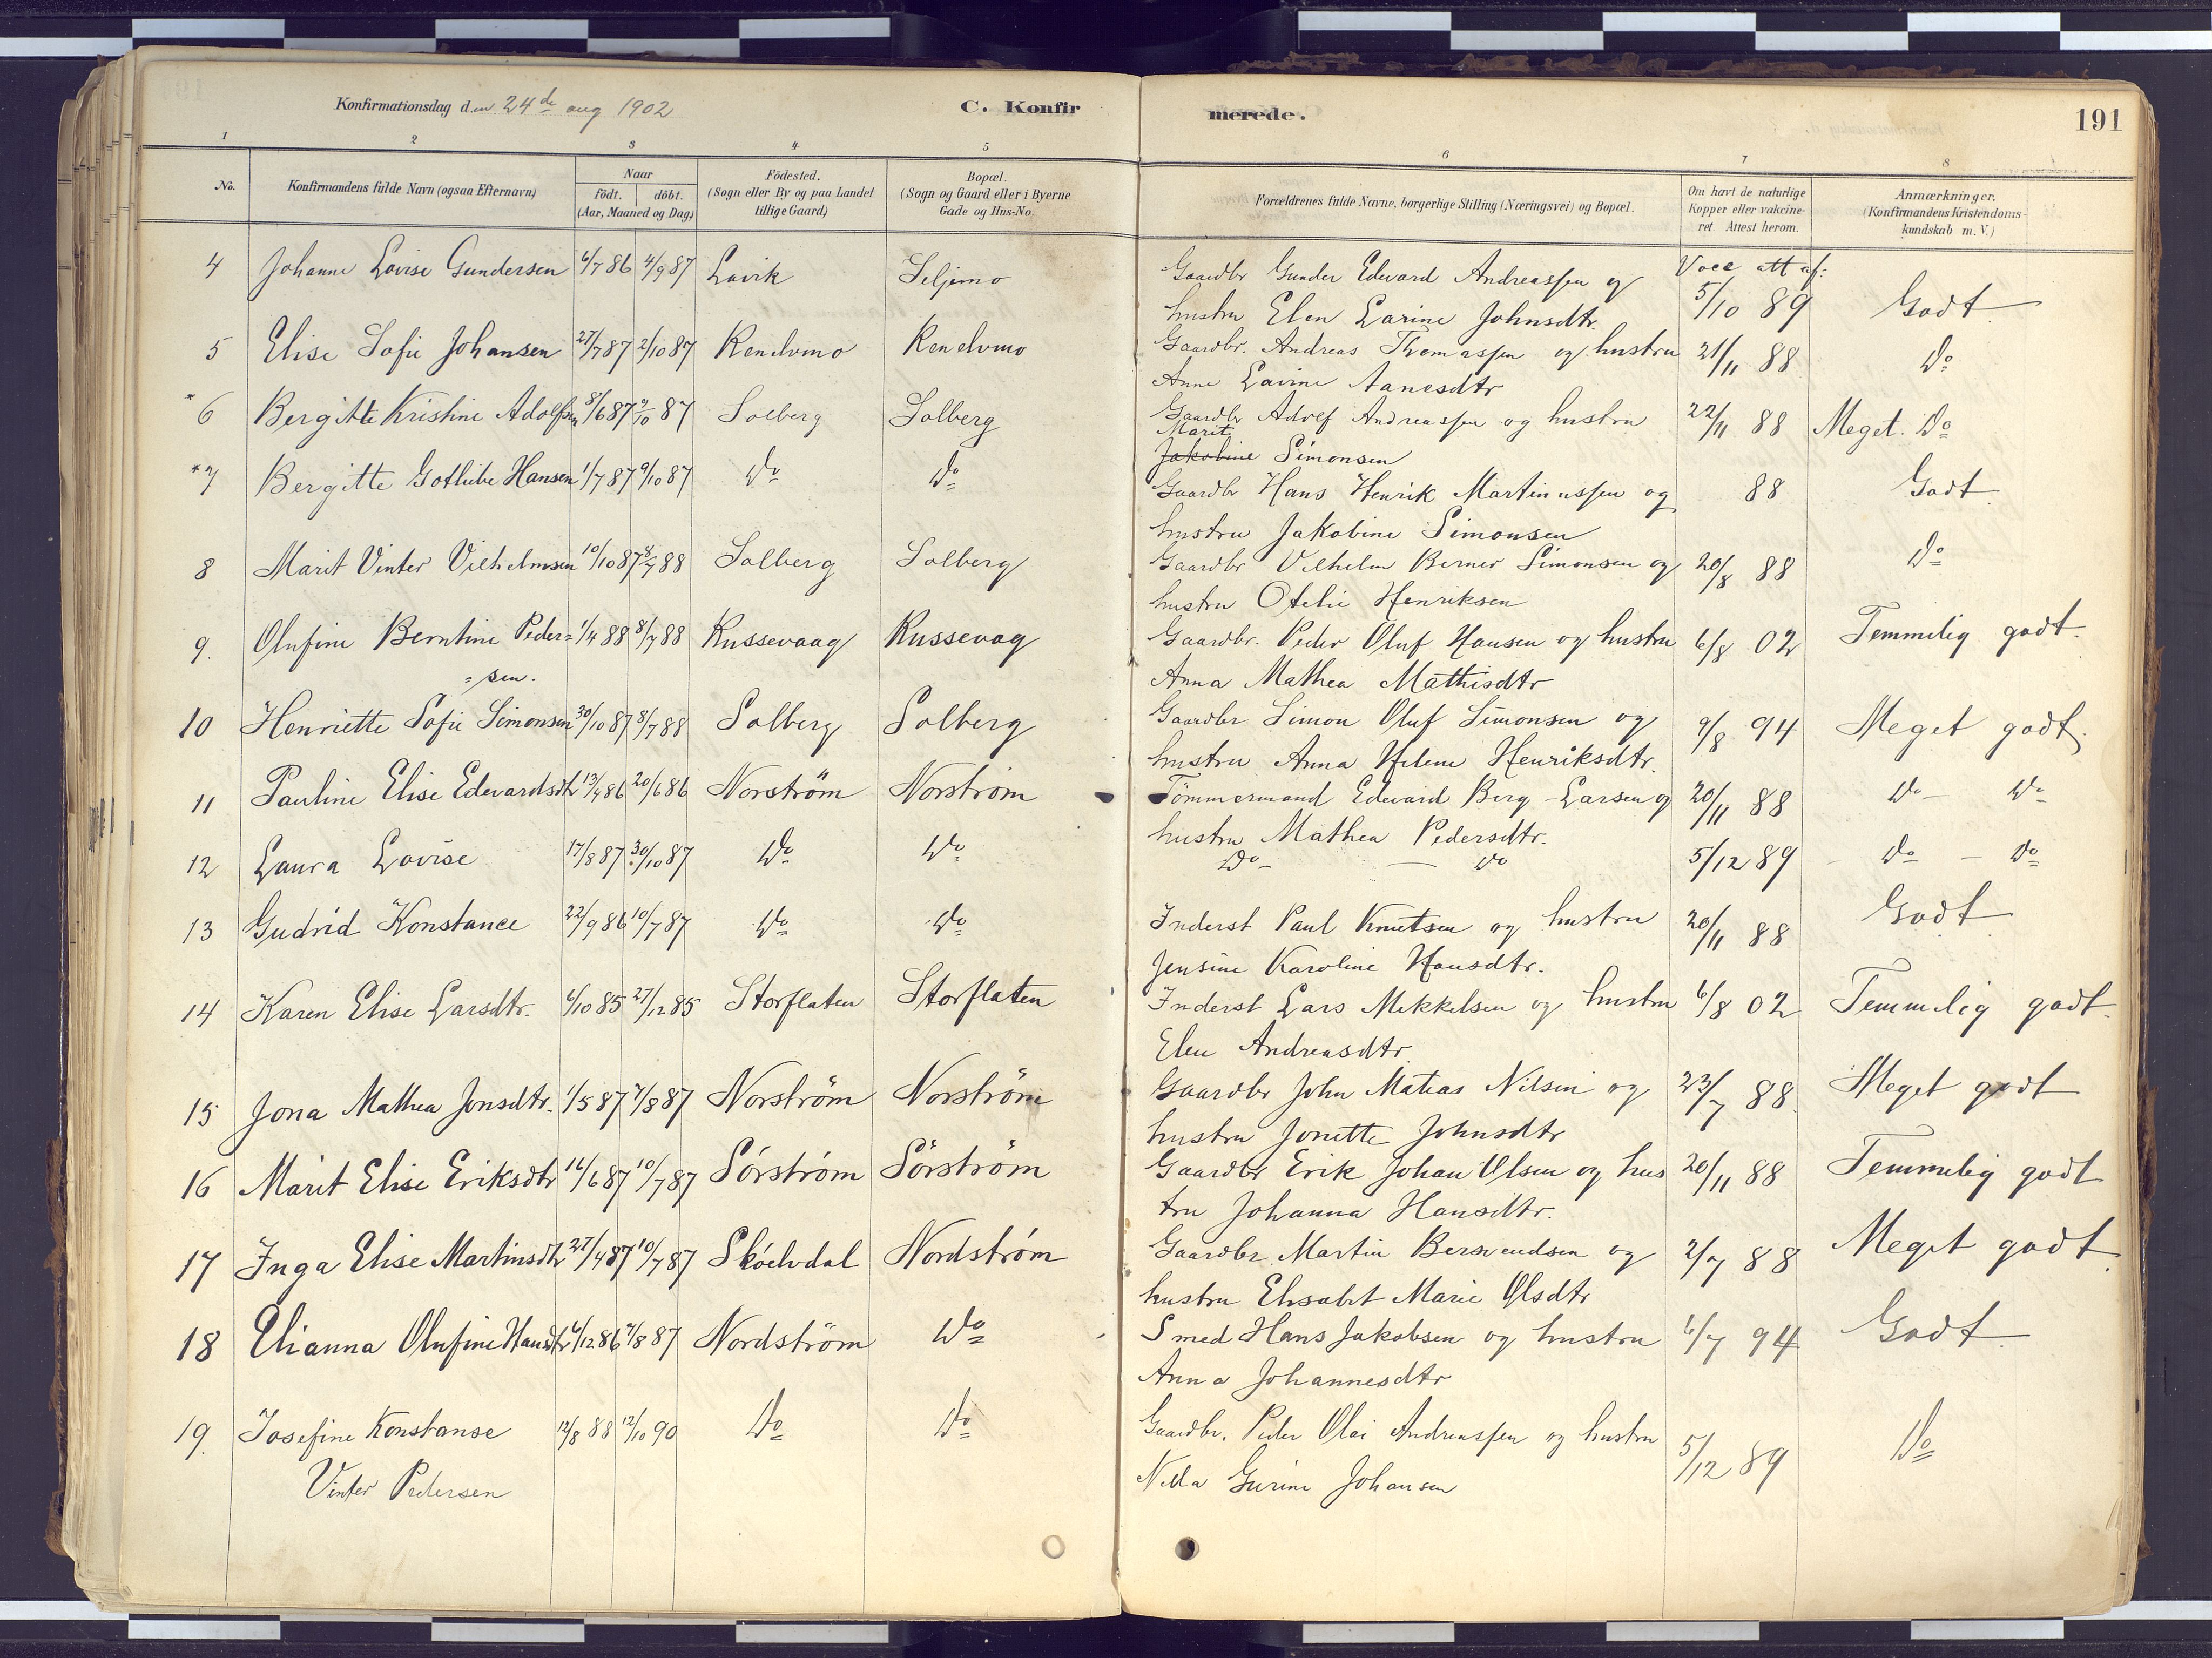 Konfirmationsdag den 24de aug 1902
C. Konfirmerede.
191
1 2 3 4 5 6 7 8
No.
Konfirmandens fulde Navn (ogsaa Efternavn)
Naar
födt. döbt.
(Aar, Maaned og Dag)
Födested.
(Sogn eller By og paa Landet
tillige Gaard)
Bopæl.
(Sogn og Gaard eller i Byerne
Gade og Hus-No.
Forældrenes fulde Navne, borgerlige Stilling (Næringsvei) og Bopæl.
Om havt de naturlige
Kopper eller vakcine-
ret. Attest herom.
Anmærkninger.
(Konfirmandens Kristendoms-
kundskab m. V.)
4 Johanne Lovise Gundersen 6/7 86 4/9 87 Lavik Seljemo Gaardbr Gunder Edvard Andreassen og Vacc att af:
hustru Elen Larine Johnsdtr. 5/10 89 Godt
5 Elise Sofie Johansen 27/7 87 2/10 87 Rendvmo Rendvmo Gaardbr. Andreas Thomassen og hustru 21/11 88 Do
Anne Lavine Aanesdtr
* 6 Bergitte Kristine Adolfsen 8/6 87 9/10 87 Solberg Solberg Gaardbr Adolf Andreassen og hustru 22/11 88 Meget. Do
Marit
Jakobine Simonsen
* 7 Bergitte Gotliebe Hansen 1/7 87 9/10 87 Do Do Gaardbr Hans Henrik Martinussen og 88 Godt
hustru Jakobine Simonsen
8 Marit Vinter Vilhelmsen 10/10 87 8/7 88 Solberg Solberg Gaardbr Vilhelm Berner Simonsen og 20/8 88 Do
hustru Otelie Henriksen
9. Olufine Berntine Peder= 1/4 88 8/7 88 Russevaag Russevag Gaardbr. Peder Oluf Hansen og hustru 6/8 02 Temmelig godt.
=sen. Anna Mathea Mathisdtr
10 Henriette Sofie Simonsen 30/10 87 8/7 88 Solberg Solberg Gaardbr Simon Oluf Simonsen og 9/8 94 Meget godt.
hustru Anna Helene Henriksdtr.
11 Pauline Elise Edvardsdtr 13/4 86 20/6 86 Norström Norström Tömmermand Edvard Berg-Larsen og 20/11 88 Do - Do
hustru Mathea Pedersdtr.
12 Laura Lovise 17/8 87 30/10 87 Do Do Do - — Do 5/12 89 - Do - Do
13 Gudrid Konstance 22/9 86 10/7 87 Do Do Inderst Paul Knutsen og hustru 20/11 88 Godt
Jensine Karoline Hansdtr.
14 Karen Elise Larsdtr. 6/10 85 27/12 85 Storflaten Storflaten Inderst Lars Mikkelsen og hustru 6/8 02 Temmelig godt.
Elen Andreasdtr.
15 Jona Mathea Jonsdtr. 1/5 87 7/8 87 Norström Norström Gaardbr John Matias Nilsen og 23/7 88. Meget godt
hustru Jonette Johnsdtr
16 Marit Elise Eriksdtr 16/6 87 10/7 87 Sörström Sörström Gaardbr Erik Johan Olsen og hus 20/11 88 Temmelig godt
tru Johanna Hansdtr.
17 Inga Elise Martinsdtr 27/4 87 10/7 87 Sködvdal Nordström Gaardbr. Martin Bersvendsen og 2/7 88 Meget godt.
hustru Elisabet Marie Olsdtr
18 Elianna Olufine Hansdtr 6/12 86 7/8 87 Nordström Do Smed Hans Jakobsen og hustru 6/7 94 Godt.
Anna Johannesdtr
19. Josefine Konstanse 12/8 88 12/10 90 Do Do Gaardbr. Peder Olai Andreassen og hustru 5/12 89 Do
Vinter Pedersen Nella Gurine Johansen